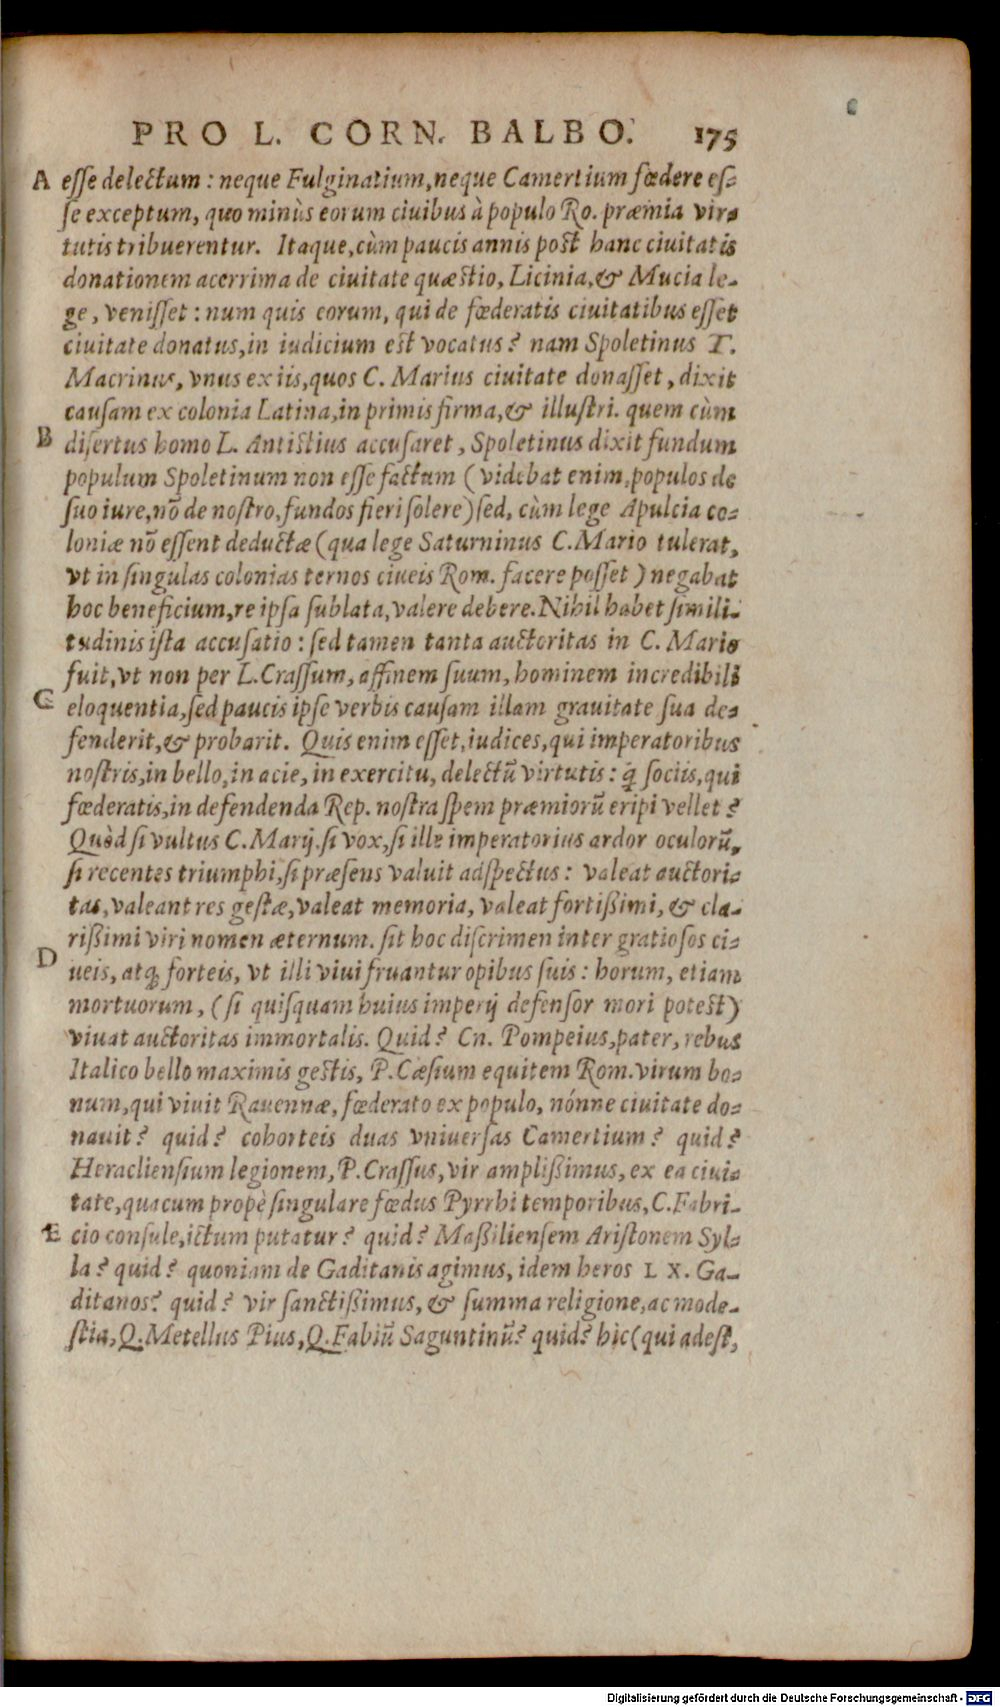 PRO L. CORN. BALBO. 175
A esse delectum: neque Fulginatium, neque Camertium fœdere es-
se exceptum, quo minùs eorum ciuibus à populo Ro. præmia vir-
tutis tribuerentur. Itaque, cùm paucis annis post hanc ciuitatis
donationem acerrima de ciuitate quæstio, Licinia, & Mucia le-
ge, venisset: num quis eorum, qui de fœderatis ciuitatibus esset
ciuitate donatus, in iudicium est vocatus? nam Spoletinus T.
Macrinus, vnus ex iis, quos C. Marius ciuitate donasset, dixit
causam ex colonia Latina, in primis firma, & illustri. quem cùm
B disertus homo L. Antistius accusaret, Spoletinus dixit fundum
populum Spoletinum non esse factum (videbat enim, populos de
suo iure, nō de nostro, fundos fieri solere) sed, cùm lege Apuleia co-
loniæ nō essent deductæ (qua lege Saturninus C. Mario tulerat,
vt in singulas colonias ternos ciueis Rom. facere posset) negabat
hoc beneficium, re ipsa sublata, valere debere. Nihil habet simili-
tudinis ista accusatio: sed tamen tanta auctoritas in C. Mario
fuit, vt non per L. Crassum, affinem suum, hominem incredibili
C eloquentia, sed paucis ipse verbis causam illam grauitate sua de-
fenderit, & probarit. Quis enim esset, iudices, qui imperatoribus
nostris, in bello, in acie, in exercitu, delectū virtutis: q̄ sociis, qui
fœderatis, in defendenda Rep. nostra spem præmiorū eripi vellet?
Quòd si vultus C. Marij. si vox, si ille imperatorius ardor oculorū,
si recentes triumphi, si præsens valuit adspectus: valeat auctori-
tas, valeant res gestæ, valeat memoria, valeat fortißimi, & cla-
rißimi viri nomen æternum. sit hoc discrimen inter gratiosos ci-
D ueis, atq; forteis, vt illi viui fruantur opibus suis: horum, etiam
mortuorum, (si quisquam huius imperij defensor mori potest)
viuat auctoritas immortalis. Quid? Cn. Pompeius, pater, rebus
Italico bello maximis gestis, P. Cæsium equitem Rom. virum bo-
num, qui viuit Rauennæ, fœderato ex populo, nónne ciuitate do-
nauit? quid? cohorteis duas vniuersas Camertium? quid?
Heracliensium legionem, P. Crassus, vir amplißimus, ex ea ciui-
tate, quacum propè singulare fœdus Pyrrhi temporibus, C. Fabri-
E cio consule, ictum putatur? quid? Maßiliensem Aristonem Syl-
la? quid? quoniam de Gaditanis agimus, idem heros LX. Ga-
ditanos? quid? vir sanctißimus, & summa religione, ac mode-
stia, Q. Metellus Pius, Q. Fabiū Saguntinū? quid? hic (qui adest,
Digitalisierung gefördert durch die Deutsche Forschungsgemeinschaft - DFG